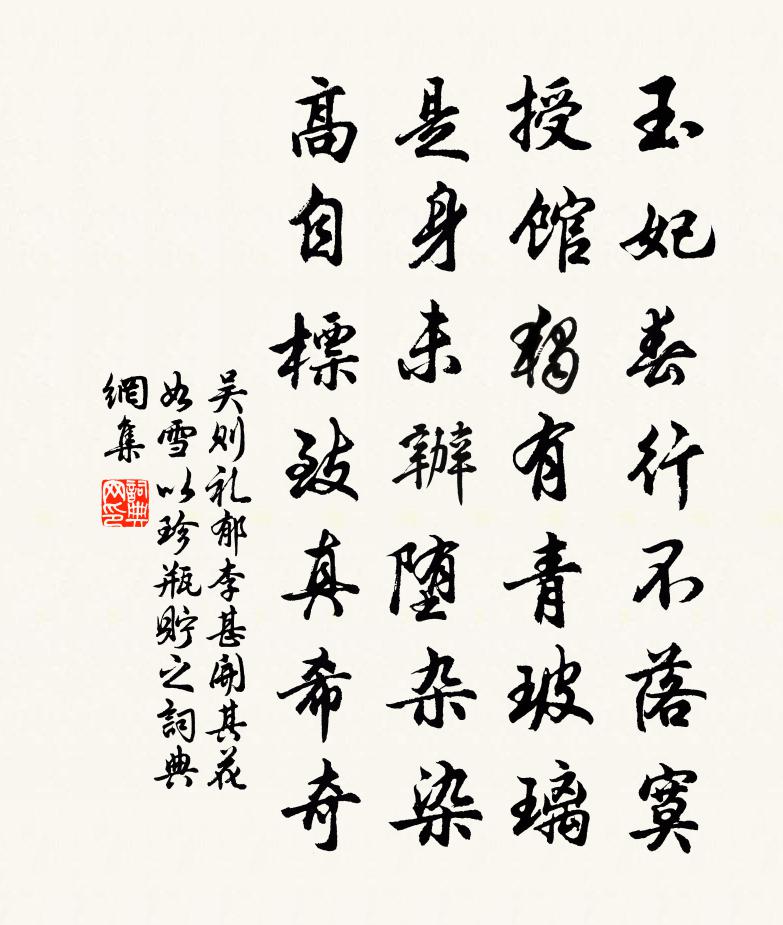 玉妃春行不落寞
授馆独有青玻璃
是身未辦堕杂染
高自標致真希奇
吴则礼郁李甚開其花
如雪以珍瓶貯之詞典
網集
詞典网印